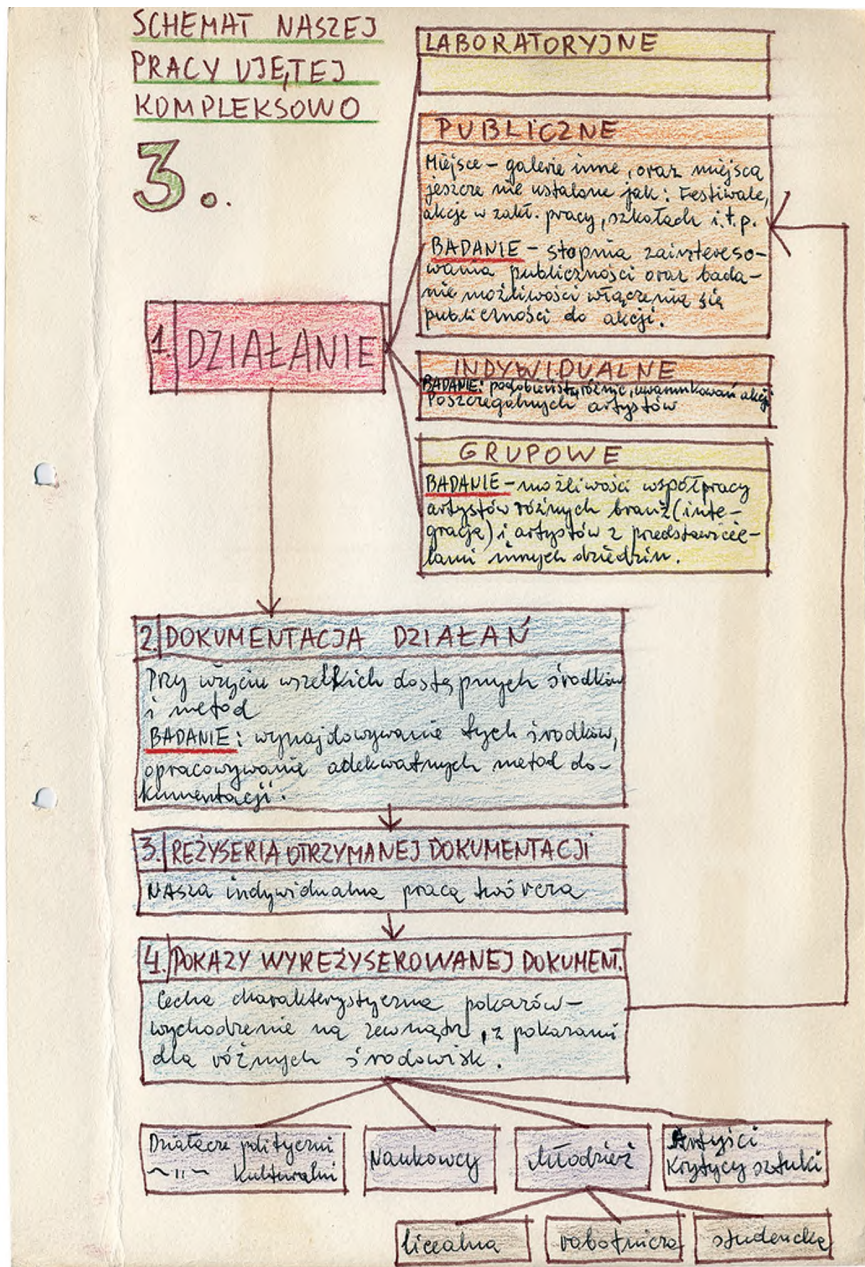 SCHEMAT NASZEJ
PRACY UJĘTEJ
KOMPLEKSOWO
3.
LABORATORYJNE
PUBLICZNE
Miejsce – galerie inne, oraz miejsca
jeszcze nie ustalone jak: Festiwale,
akcje w zakł. pracy, szkołach i.t.p.
BADANIE – stopnia zaintereso-
wania publiczności oraz bada-
nie możliwości włączenia się
publiczności do akcji.
1. DZIAŁANIE
INDYWIDUALNE
BADANIE: podobieństw, różnic, uwarunkowań akcji
Poszczególnych artystów
GRUPOWE
BADANIE – możliwości współpracy
artystów różnych branż (inte-
gracja) i artystów z przedstawicie-
lami innych dziedzin.
2. DOKUMENTACJA DZIAŁAŃ
Przy użyciu wszelkich dostępnych środków
i metod
BADANIE: wynajdowywanie tych środków,
opracowywanie adekwatnych metod do-
kumentacji.
3. REŻYSERIA OTRZYMANEJ DOKUMENTACJI
Nasza indywidualna praca twórcza
4. POKAZY WYREŻYSEROWANEJ DOKUMENT.
Cecha charakterystyczna pokazów –
wychodzenie na zewnątrz, z pokazami
dla różnych środowisk.
Działacze polityczni
~ıı~ kulturalni
Naukowcy
Młodzież
Artyści
Krytycy sztuki
licealna
robotnicza
studencka